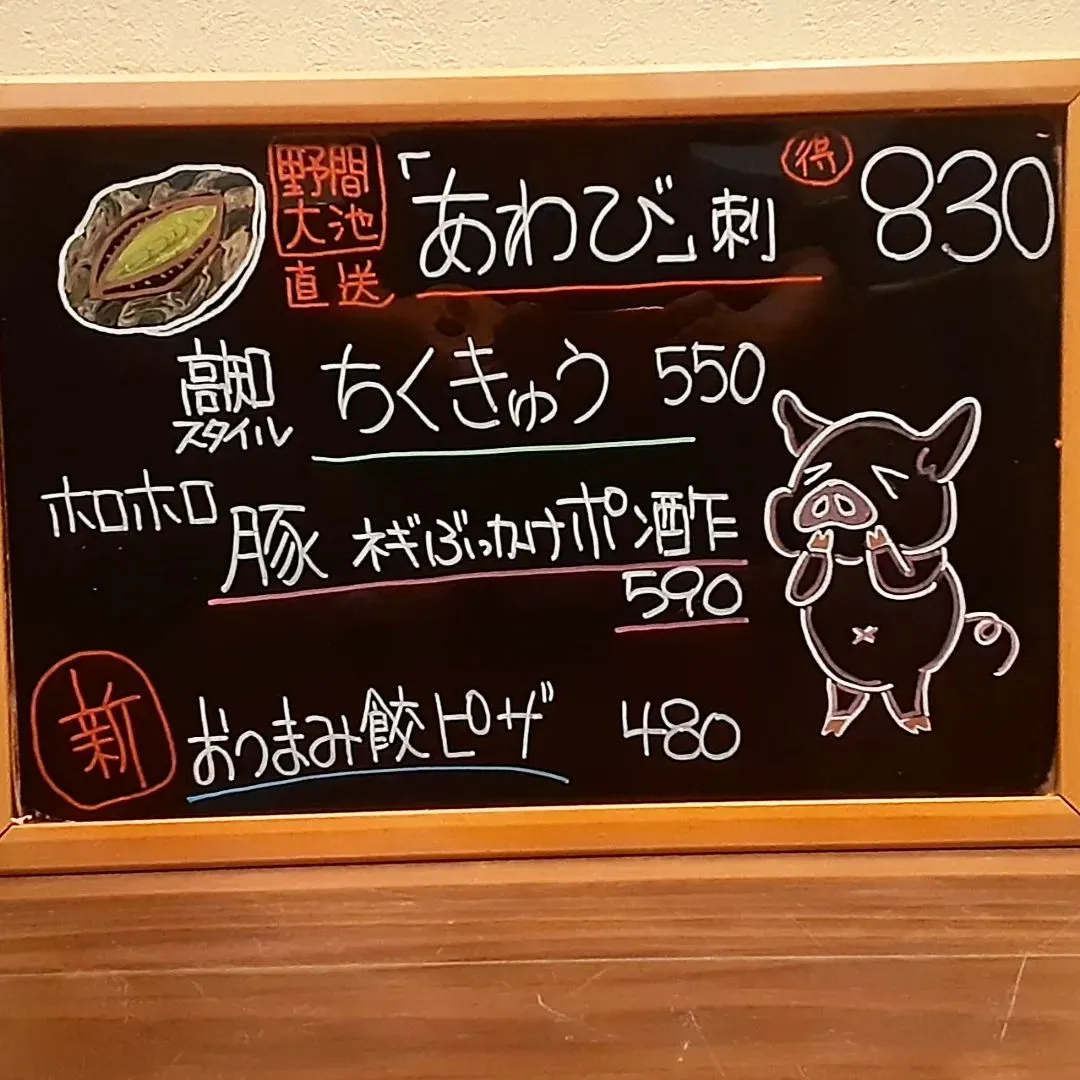 野間
大池
直送
「あわび」刺 得 830
高知
スタイル
ちくきゅう 550
ホロホロ
豚 ネギぶっかけポン酢
590
新 おつまみ餃ピザ 480